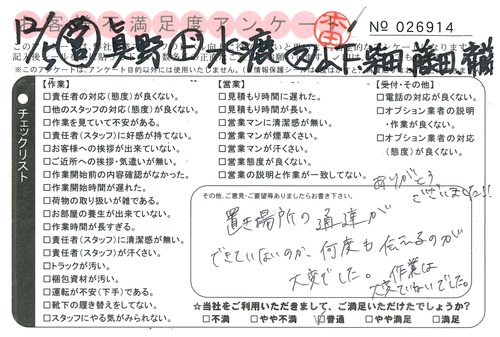 お客様不満足度アンケート
№ 026914
12/5 営 眞野 田 木瀬
チェックリスト
【作業】
□責任者の対応(態度)が良くない。
□他のスタッフの対応(態度)が良くない。
□作業を見ていて不安がある。
□責任者(スタッフ)に好感が持てない。
□お客様への挨拶が出来ていない。
□ご近所への挨拶・気遣いが無い。
□作業開始前の内容確認がなかった。
□作業開始時間が遅れた。
□荷物の取り扱いが雑である。
□お部屋の養生が出来ていない。
□作業時間が長すぎる。
□責任者(スタッフ)に清潔感が無い。
□責任者(スタッフ)が汗くさい。
□トラックが汚い。
□梱包資材が汚い。
□運転が不安(下手)である。
□靴下の履き替えをしてない。
□スタッフにやる気がみられない。
【営業】
□見積もり時間に遅れた。
□見積もり時間が長い。
□営業マンに清潔感が無い。
□営業マンが煙草くさい。
□営業マンが汗くさい。
□営業態度が良くない。
□営業の説明と作業が一致してない。
【受付・その他】
□電話の対応が良くない。
□オプション業者の説明・作業が良くない。
□オプション業者の対応(態度)が良くない。
その他、ご意見・ご要望等ありましたらお書き下さい。
ありがとうございました!!
置き場所の通達が
できていないのか、何度も伝えるのが
大変でした。作業は
大変ていねいでした。
☆当社をご利用いただきまして、ご満足いただけたでしょうか?
□不満 □やや不満 □普通 □やや満足 □満足